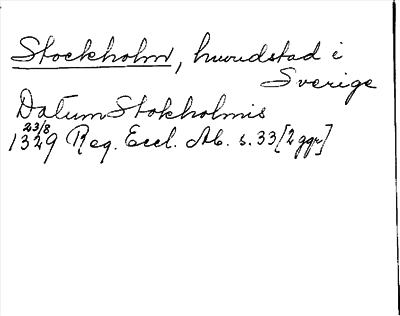 Stockholm, huvudstad i
Sverige
Datum Stokholmis
23/8
1329 Reg. Eccl. Ab. s. 33 [2 ggr]